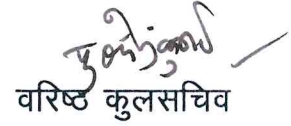 वरिष्ठ कुलसचिव